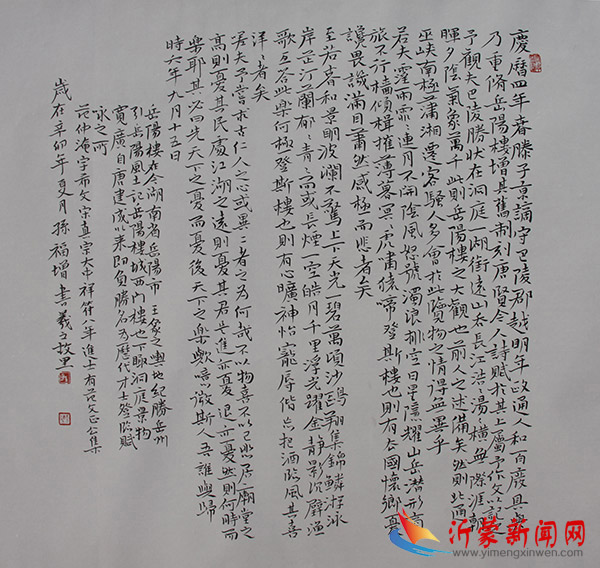 慶曆四年春滕子京謫守巴陵郡越明年政通人和百廢具興
乃重修岳陽樓增其舊制刻唐賢今人詩賦於其上屬予作文以記之
予觀夫巴陵勝狀在洞庭一湖銜遠山吞長江浩浩湯湯橫無際涯朝
暉夕陰氣象萬千此則岳陽樓之大觀也前人之述備矣然則北通
巫峽南極瀟湘遷客騷人多會於此覽物之情得無異乎
若夫霪雨霏霏連月不開陰風怒號濁浪排空日星隱耀山岳潛形商
旅不行檣傾楫摧薄暮冥冥虎嘯猿啼登斯樓也則有去國懷鄉憂
讒畏譏滿目蕭然感極而悲者矣
至若春和景明波瀾不驚上下天光一碧萬頃沙鷗翔集錦鱗游泳
岸芷汀蘭郁郁青青而或長煙一空皓月千里浮光躍金靜影沉璧漁
歌互答此樂何極登斯樓也則有心曠神怡寵辱偕忘把酒臨風其喜
洋洋者矣
嗟夫予嘗求古仁人之心或異二者之為何哉不以物喜不以己悲居廟堂之
高則憂其民處江湖之遠則憂其君是進亦憂退亦憂然則何時而
樂耶其必曰先天下之憂而憂後天下之樂歟噫微斯人吾誰與歸
時六年九月十五日
岳陽樓在今湖南省岳陽市 王象之輿地紀勝岳州
引岳陽風土記岳陽樓城西門樓也下瞰洞庭景物
寬廣自唐建成以來即負勝名為歷代才士登臨賦
咏之所
范仲淹字希文宋真宗大中祥符八年進士有范文正公集
歲在辛卯年夏月孫福增書羲之故里
沂蒙新闻网
www.yimengxinwen.com